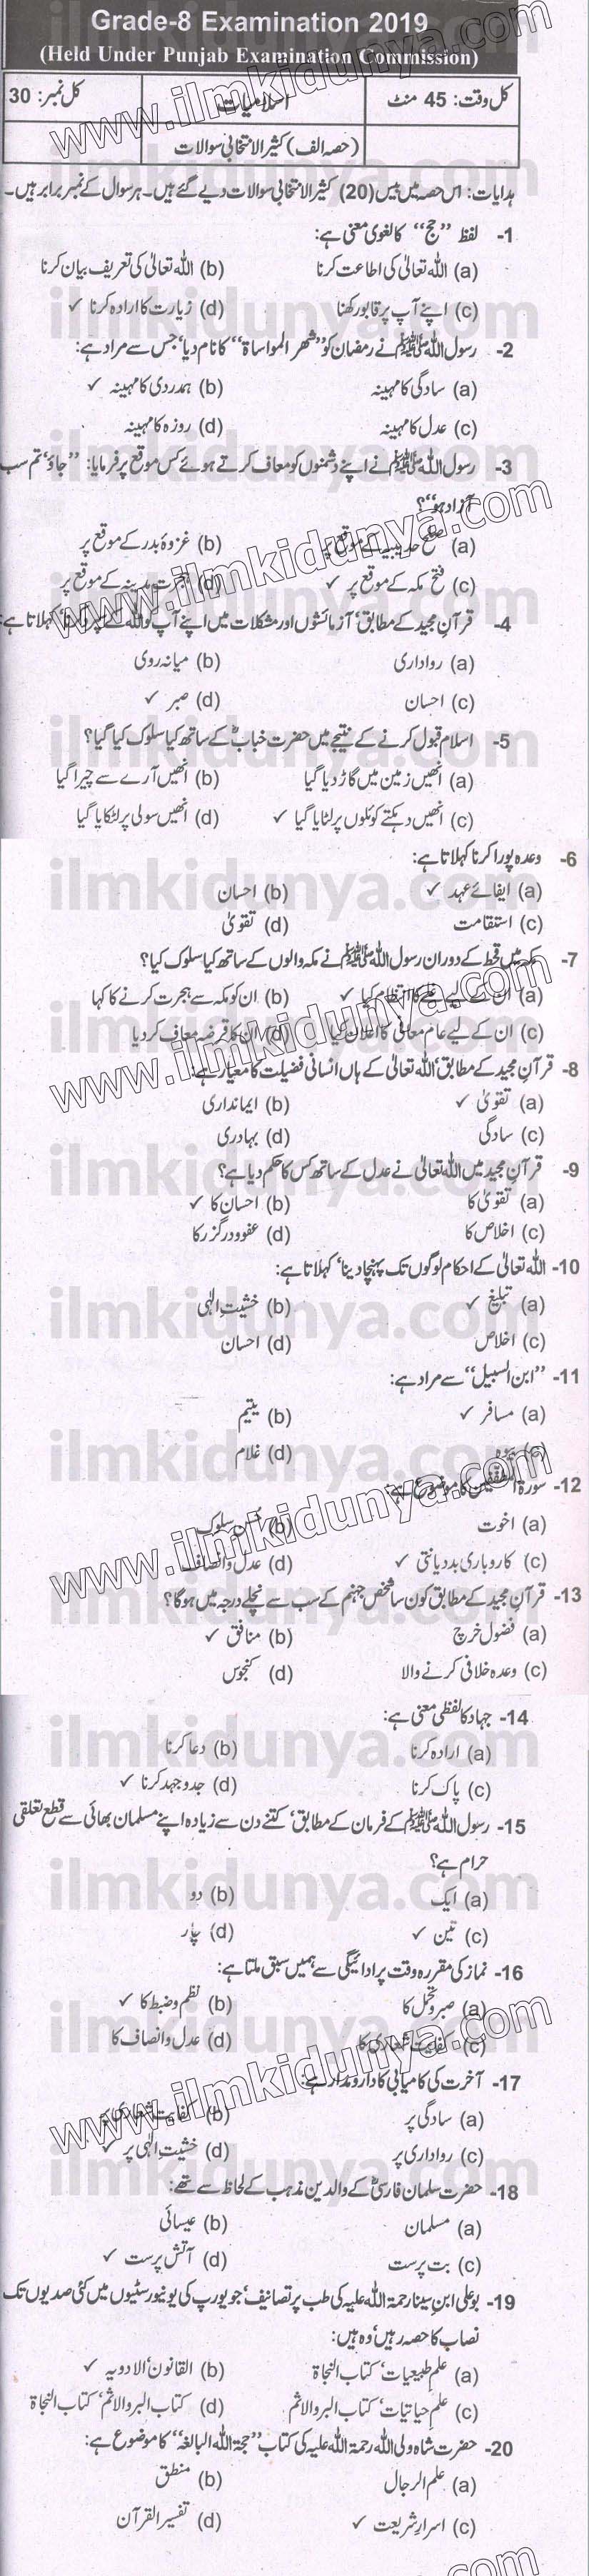 Grade-8 Examination 2019
(Held Under Punjab Examination Commission)
کل وقت: 45 منٹ اسلامیات کل نمبر: 30
(حصہ الف) کثیر الانتخابی سوالات
ہدایات: اس حصہ میں بیس (20) کثیر الانتخابی سوالات دیے گئے ہیں۔ ہر سوال کے نمبر برابر ہیں۔
1- لفظ ’’حج‘‘ کا لغوی معنی ہے:
(a) اللہ تعالیٰ کی اطاعت کرنا (b) اللہ تعالیٰ کی تعریف بیان کرنا
(c) اپنے آپ پر قابو رکھنا (d) زیارت کا ارادہ کرنا ✓
2- رسول اللہ ﷺ نے رمضان کو ’’شھر المواساۃ‘‘ کا نام دیا، جس سے مراد ہے:
(a) سادگی کا مہینہ (b) ہمدردی کا مہینہ ✓
(c) عدل کا مہینہ (d) روزہ کا مہینہ
3- رسول اللہ ﷺ نے اپنے دشمنوں کو معاف کرتے ہوئے کس موقع پر فرمایا: ’’جاؤ، تم سب
آزاد ہو‘‘؟
(a) صلح حدیبیہ کے موقع پر (b) غزوۂ بدر کے موقع پر
(c) فتح مکہ کے موقع پر ✓ (d) ہجرت مدینہ کے موقع پر
4- قرآن مجید کے مطابق، آزمائشوں اور مشکلات میں اپنے آپ کو اللہ کے سپرد کرنا، کہلاتا ہے:
(a) رواداری (b) میانہ روی
(c) احسان (d) صبر ✓
5- اسلام قبول کرنے کے نتیجے میں حضرت خبابؓ کے ساتھ کیا سلوک کیا گیا؟
(a) انھیں زمین میں گاڑ دیا گیا (b) انھیں آرے سے چیرا گیا
(c) انھیں دہکتے کوئلوں پر لٹایا گیا ✓ (d) انھیں سولی پر لٹکایا گیا
6- وعدہ پورا کرنا کہلاتا ہے:
(a) ایفائے عہد ✓ (b) احسان
(c) استقامت (d) تقویٰ
7- مکہ میں قحط کے دوران رسول اللہ ﷺ نے مکہ والوں کے ساتھ کیا سلوک کیا؟
(a) ان کے لیے غلے کا انتظام کیا ✓ (b) ان کو مکہ سے ہجرت کرنے کا کہا
(c) ان کے لیے عام معافی کا اعلان کیا (d) ان کا قرضہ معاف کر دیا
8- قرآن مجید کے مطابق، اللہ تعالیٰ کے ہاں انسانی فضیلت کا معیار ہے:
(a) تقویٰ ✓ (b) ایمانداری
(c) سادگی (d) بہادری
9- قرآن مجید میں اللہ تعالیٰ نے عدل کے ساتھ کس کا حکم دیا ہے؟
(a) تقویٰ کا (b) احسان کا ✓
(c) اخلاص کا (d) عفوودرگزر کا
10- اللہ تعالیٰ کے احکام لوگوں تک پہنچا دینا، کہلاتا ہے:
(a) تبلیغ ✓ (b) خشیتِ الٰہی
(c) اخلاص (d) احسان
11- ’’ابن السبیل‘‘ سے مراد ہے:
(a) مسافر ✓ (b) یتیم
(c) بیوہ (d) غلام
12- سورۃ المطففین کا موضوع ہے:
(a) اخوت (b) حسنِ سلوک
(c) کاروباری بددیانتی ✓ (d) عدل وانصاف
13- قرآن مجید کے مطابق کون سا شخص جہنم کے سب سے نچلے درجہ میں ہوگا؟
(a) فضول خرچ (b) منافق ✓
(c) وعدہ خلافی کرنے والا (d) کنجوس
14- جہاد کا لفظی معنی ہے:
(a) ارادہ کرنا (b) دعا کرنا
(c) پاک کرنا (d) جدوجہد کرنا ✓
15- رسول اللہ ﷺ کے فرمان کے مطابق، کتنے دن سے زیادہ اپنے مسلمان بھائی سے قطع تعلقی
حرام ہے؟
(a) ایک (b) دو
(c) تین ✓ (d) چار
16- نماز کی مقررہ وقت پر ادائیگی سے ہمیں سبق ملتا ہے:
(a) صبر وتحمل کا (b) نظم وضبط کا ✓
(c) کفایت شعاری کا (d) عدل وانصاف کا
17- آخرت کی کامیابی کا دارومدار ہے:
(a) سادگی پر (b) کفایت شعاری پر
(c) رواداری پر (d) خشیتِ الٰہی پر ✓
18- حضرت سلمان فارسیؓ کے والدین مذہب کے لحاظ سے تھے:
(a) مسلمان (b) عیسائی
(c) بت پرست (d) آتش پرست ✓
19- بوعلی ابن سینا رحمۃ اللہ علیہ کی طب پر تصانیف، جو یورپ کی یونیورسٹیوں میں کئی صدیوں تک
نصاب کا حصہ رہیں، وہ ہیں:
(a) علم طبیعیات، کتاب النجاۃ (b) القانون، الادویہ ✓
(c) علم حیاتیات، کتاب البر والاثم (d) کتاب البر والاثم، کتاب النجاۃ
20- حضرت شاہ ولی اللہ رحمۃ اللہ علیہ کی کتاب ’’حجۃ اللہ البالغہ‘‘ کا موضوع ہے:
(a) علم الرجال (b) منطق
(c) اسرارِ شریعت ✓ (d) تفسیر القرآن
www.ilmkidunya.com
ilmkidunya.com